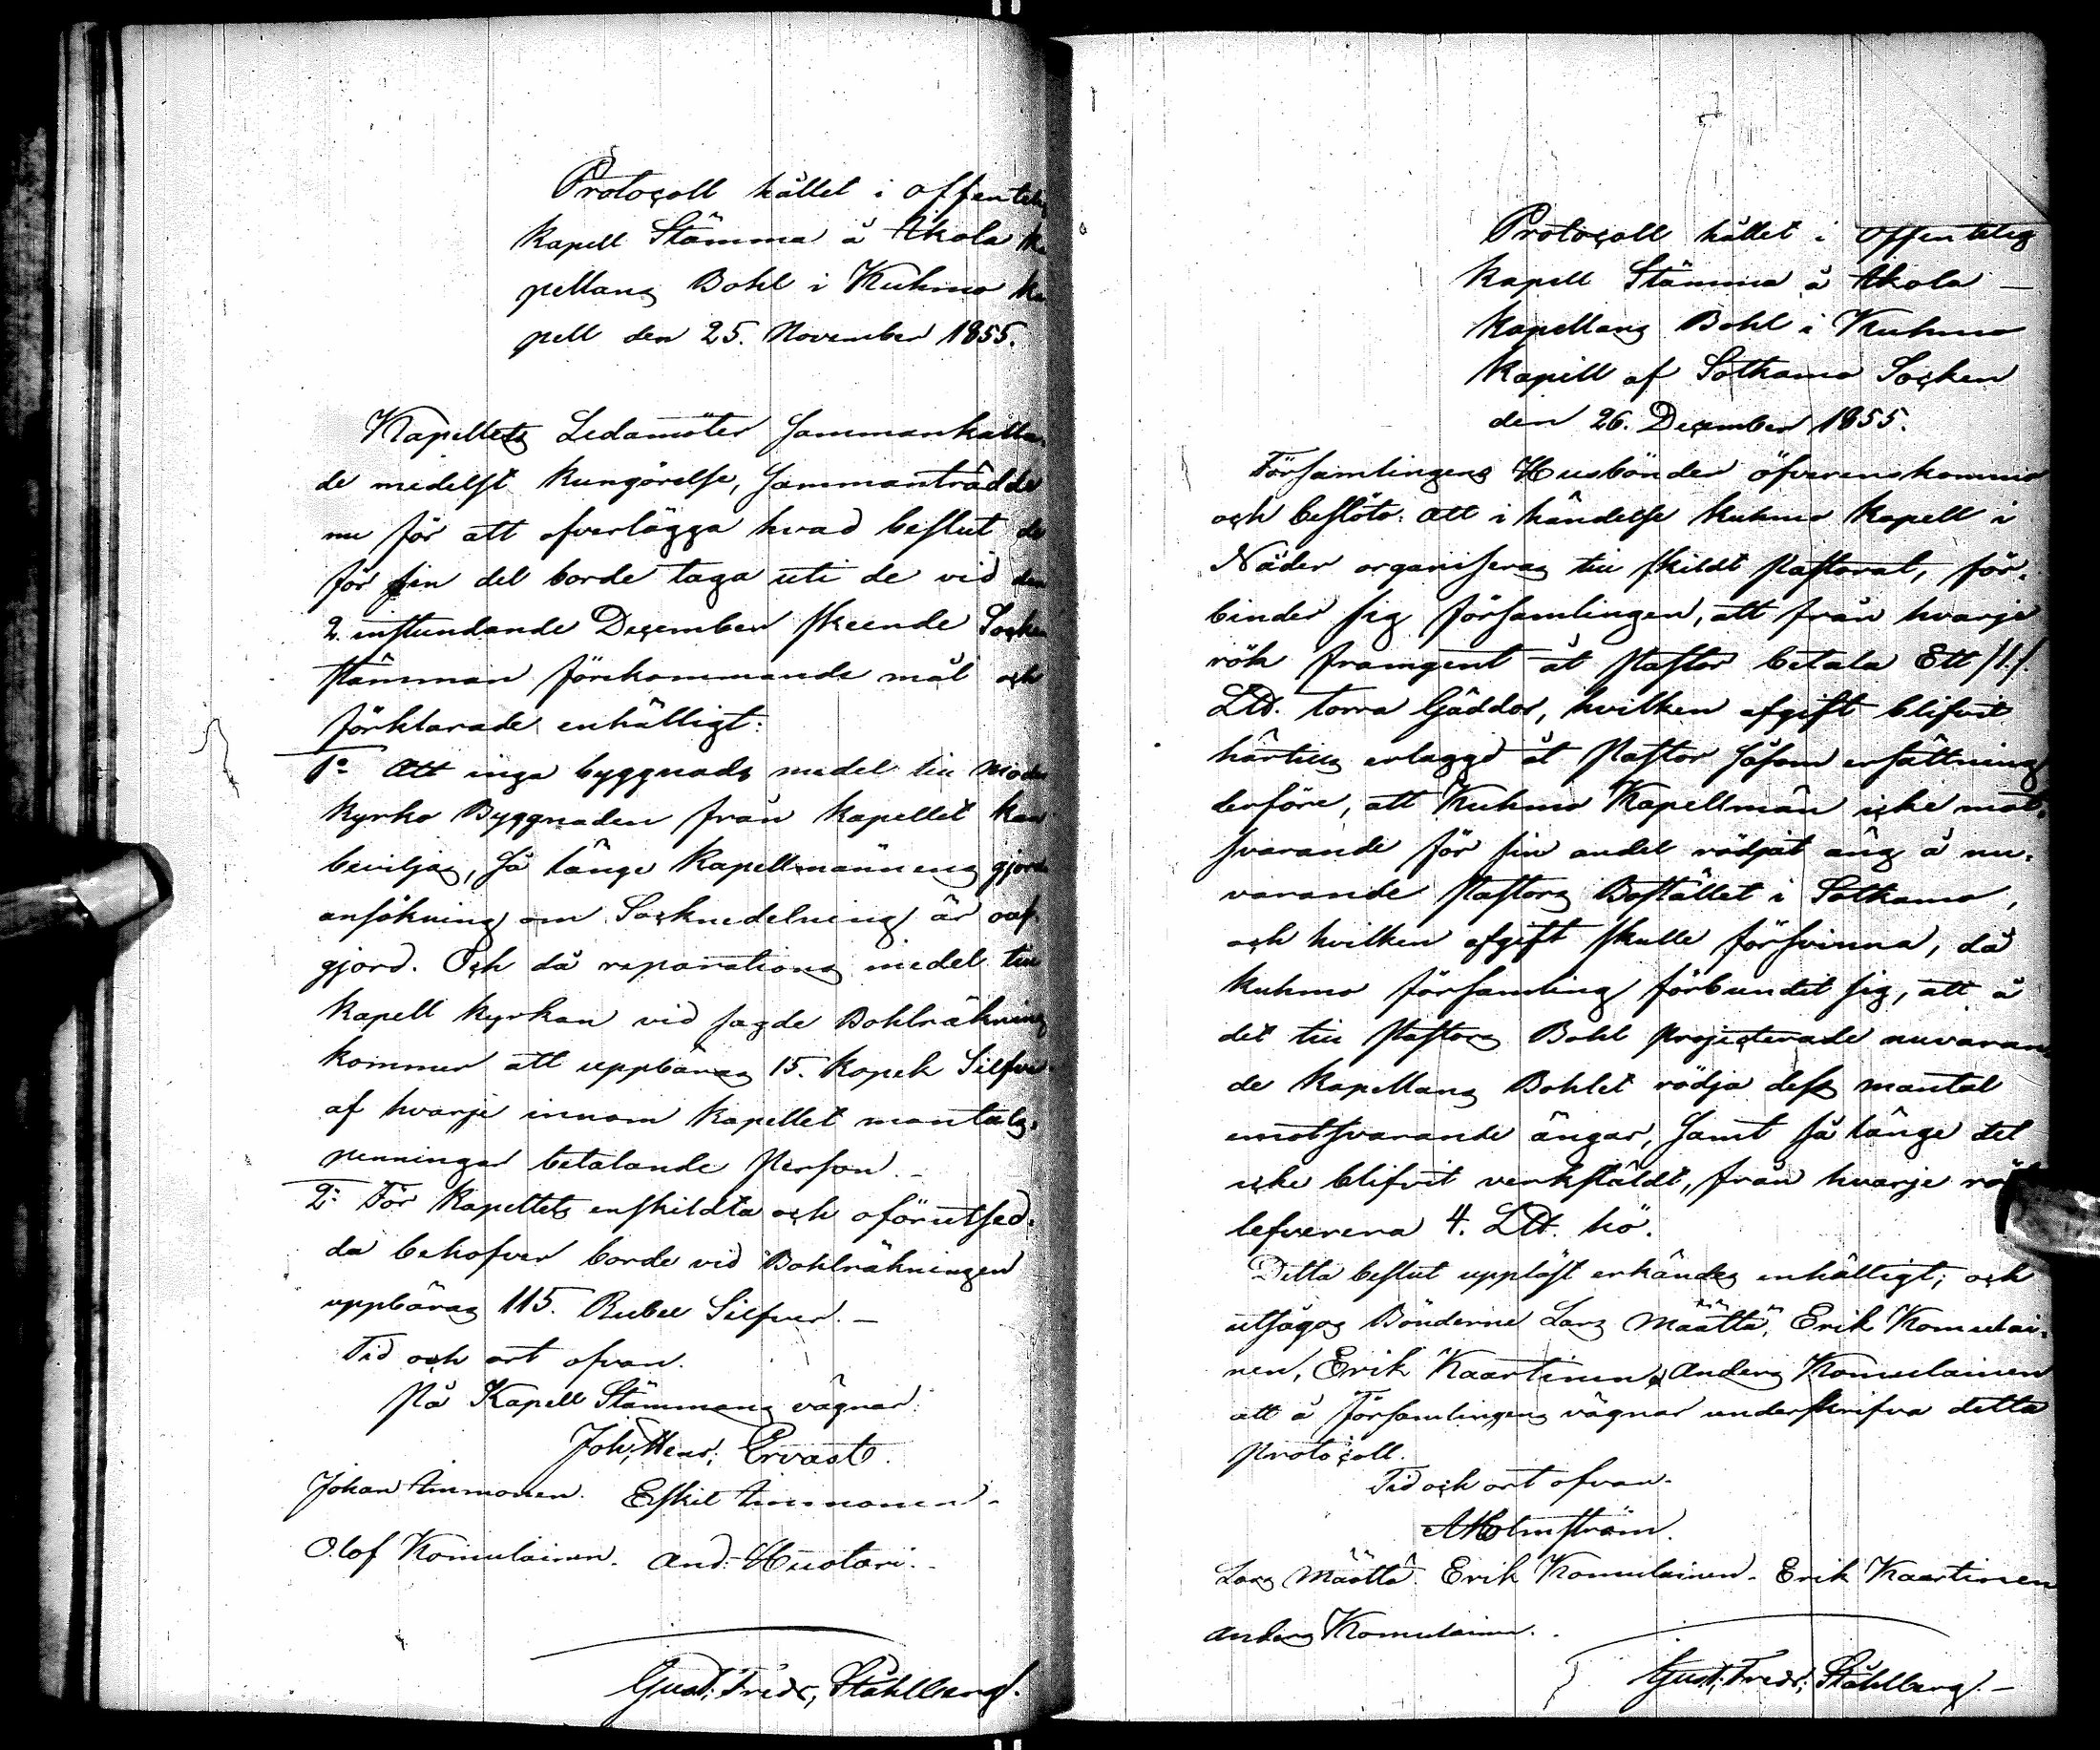 Protocoll hållet i offentelig
kapell Stämma å Akola ka
pellans Bohl i Kuhmo ka
pell den 25. November 1855.
Kapellets Ledamöter sammankalla-
de medelst kungörelse, sammanträdde
nu för att öfverlägga hvad beslut de
för sin del borde taga uti de vid den
2. instundande December skeende Socken
stämman förekommande mål och
förklarade enhälligt:
1o Att inga byggnads medel till Moder
kyrko Byggnaden från kapellet kan
beviljas, så länge kapellmännens gjorda
ansökning om Socknedelning är oaf-
gjord. Och då reparations medel till
kapell kyrkan vid sagde Bohlräkning
kommer att uppbäras 15. kopek Silfver
af hvarje innom kapellet mantals-
penningar betalande person. -
2: För kapellets enskildta och oförutsed-
da behofver borde vid Bohlräkningen
uppbäras 115. Rubel Silfver. -
Tid och ort ofvan.
På Kapell Stämmans vägnar:
Joh: Henr: Ervast.
Johan Timonen. Eskil Timonen.
Olof Komulainen. And: Huotari.
Gust: Fredr: Ståhlberg.
Protocoll hållet i offentelig
kapell Stämma å Akola -
kapellans Bohl i Kuhmo
Kapell af Sotkamo Socken
den 26. December 1855.
Församlingens Husbönder öfverenskommo
och beslöto: att i händelse kuhmo kapell i
Nåder organiseras till skildt pastorat, för-
binder sig församlingen, att från hvarje
rök framgent åt pastor betala Ett /1./
LTt. torra Gäddor, hvilken afgift blifvit
härtills erlaggd åt Pastor såsom ersättning
derföre, att Kuhmo Kapellmän icke mot-
svarande för sin andel rödjat äng å nu-
varande Pastors Bostället i Sotkamo,
och hvilken afgift skulle försvinna, då
kuhmo församling förbundet sig, att å
det till Pastors Bohl projecterade nuvaran
de kapellans Bohlet rödja dess mantal
emotsvarande ängar, samt så länge det
icke blifvit verkstäldt, från hvarje rök
lefverera 4. LTt. hö.
Detta beslut uppläst erkändes enhälligt; och
utsågos Bönderne Lars Määttä, Erik Komulai-
nen, Erik Kaartinen, Anders Komulainen
att å Församlingens vägnar underskrifva detta
protocoll.
Tid och ort ofvan.
A Holmström.
Lars Määttä. Erik Komulainen. Erik Kaartinen
Anders Komulainen.
Gust: Fredr: Ståhlberg. -